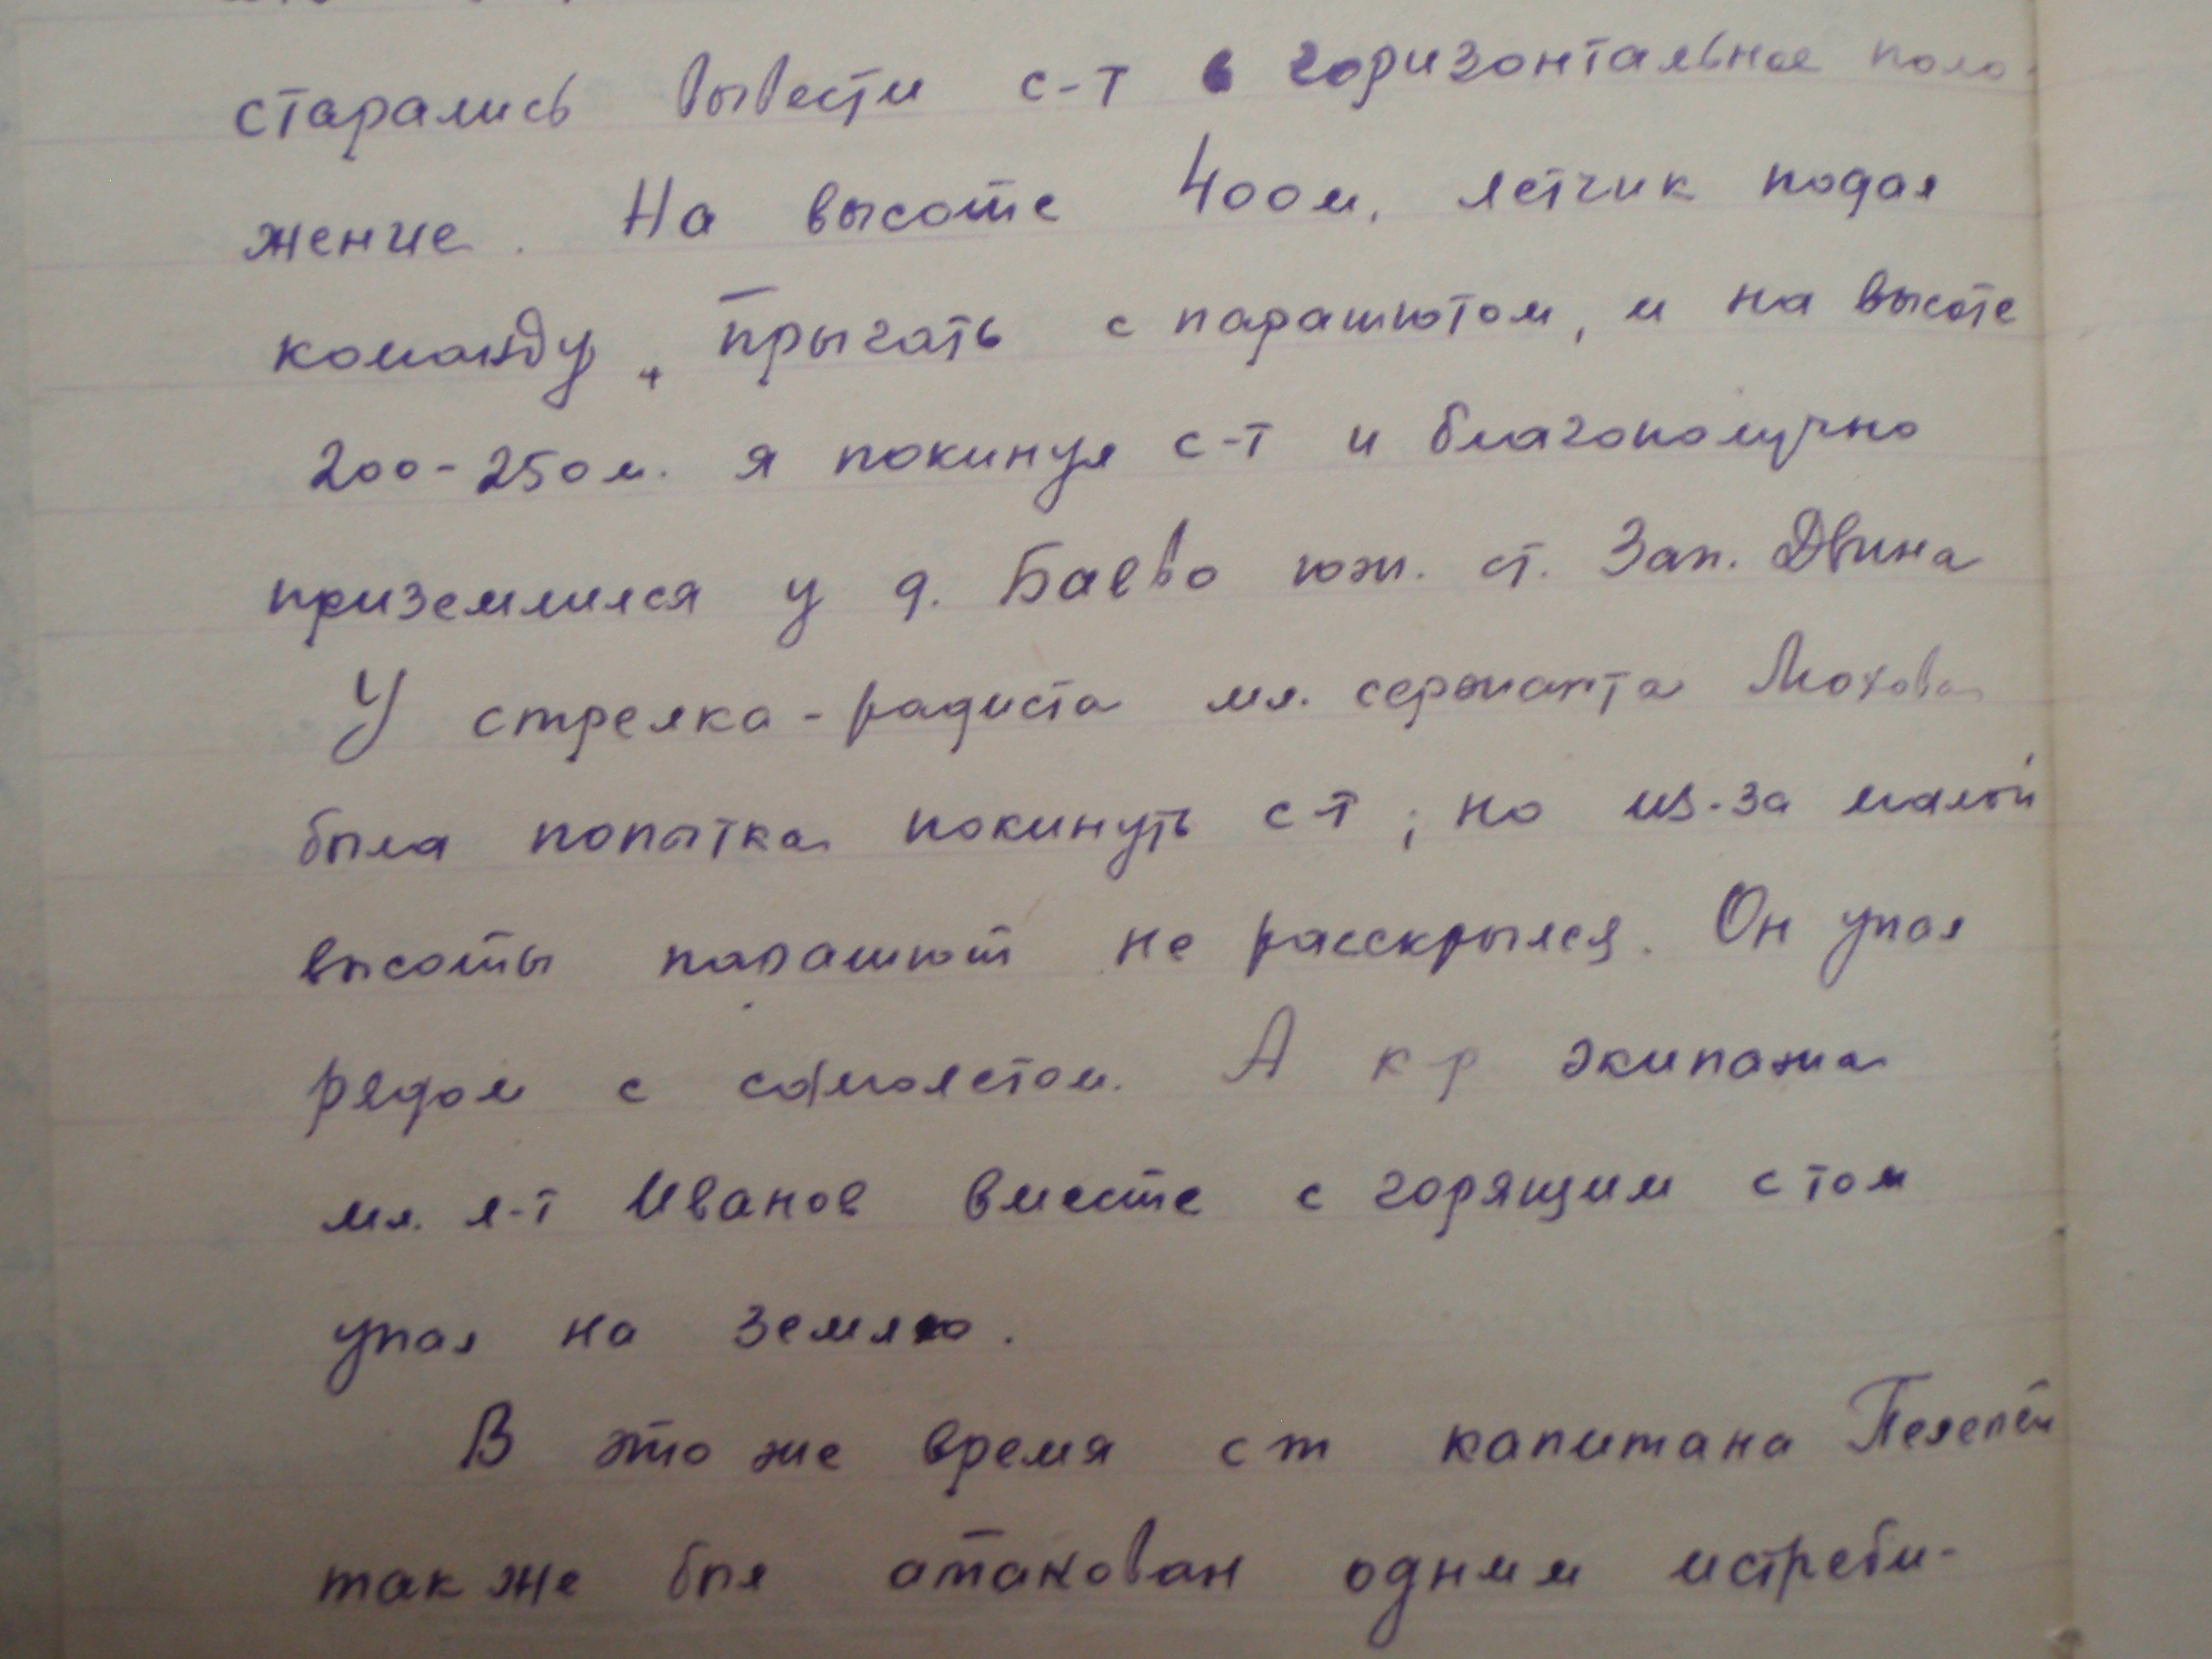 старались вывести с-т в горизонтальное поло-
жение. На высоте 400м, летчик подал
команду, прыгать с парашютом, и на высоте
200-250м. я покинул с-т и благополучно
приземлился у д. Баево юж. ст. Зап. Двина
У стрелка-радиста мл. сержанта
была попытка покинуть с-т, но из-за малой
высоты парашют не расскрылся. Он упал
рядом с самолетом. А к-р экипажа
мл. л-т Иванов вместе с горящим с том
упал на землю.
В это же время с т капитана
так же был атакован одним истреби-